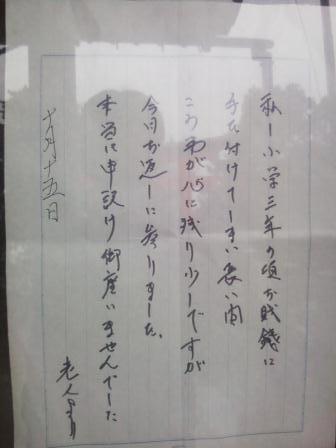 私し小学三年の頃お賽錢に
手を付けてしまい長い間
この事が心に残り少しですが
今日お返しに参りました、
本当に申訳け御座いませんでした
老人より
十月十五日